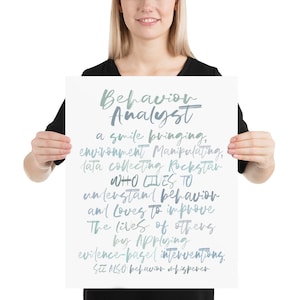 Behavior
Analyst
a smile bringing,
environment Manipulating,
data collecting Rockstar
WHO LIVES TO
understand behavior
and Loves to improve
The lives of others
by Applying
evidence-based interventions.
SEE ALSO behavior whisperer